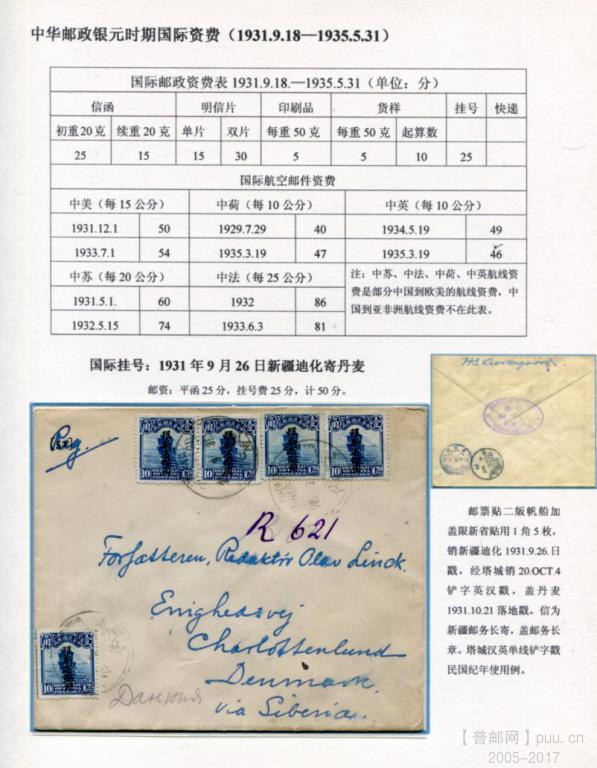 中华邮政银元时期国际资费（1931.9.18—1935.5.31）
国际邮政资费表 1931.9.18.—1935.5.31（单位：分）
信函 明信片 印刷品 货样 挂号 快递
初重20克 续重20克 单片 双片 每重50克 每重50克 起算数
25 15 15 30 5 5 10 25
国际航空邮件资费
中美（每15公分） 中荷（每10公分） 中英（每10公分）
1931.12.1 50 1929.7.29 40 1934.5.19 49
1933.7.1 54 1935.3.19 47 1935.3.19 46
中苏（每20公分） 中法（每25公分）
1931.5.1. 60 1932 86
1932.5.15 74 1933.6.3 81
注：中苏、中法、中荷、中英航线资
费是部分中国到欧美的航线资费，中
国到亚非洲航线资费不在此表。
国际挂号：1931年9月26日新疆迪化寄丹麦
邮资：平函25分，挂号费25分，计50分。
Reg.
10 Cts 10 Cts 10 Cts 10 Cts
R 621
Forfatteren, Redaktör Olav Linck.
Enighedsvej
Charlottenlund
Denmark.
via Siberia.
10 Cts
Дания
邮票贴二版帆船加
盖限新省贴用1角5枚，
销新疆迪化1931.9.26.日
戳，经塔城销20.OCT.4
铲字英汉戳，盖丹麦
1931.10.21落地戳。信为
新疆邮务长寄，盖邮务长
章。塔城汉英单线铲字戳
民国纪年使用例。
【普邮网】puu.cn
2005-2017